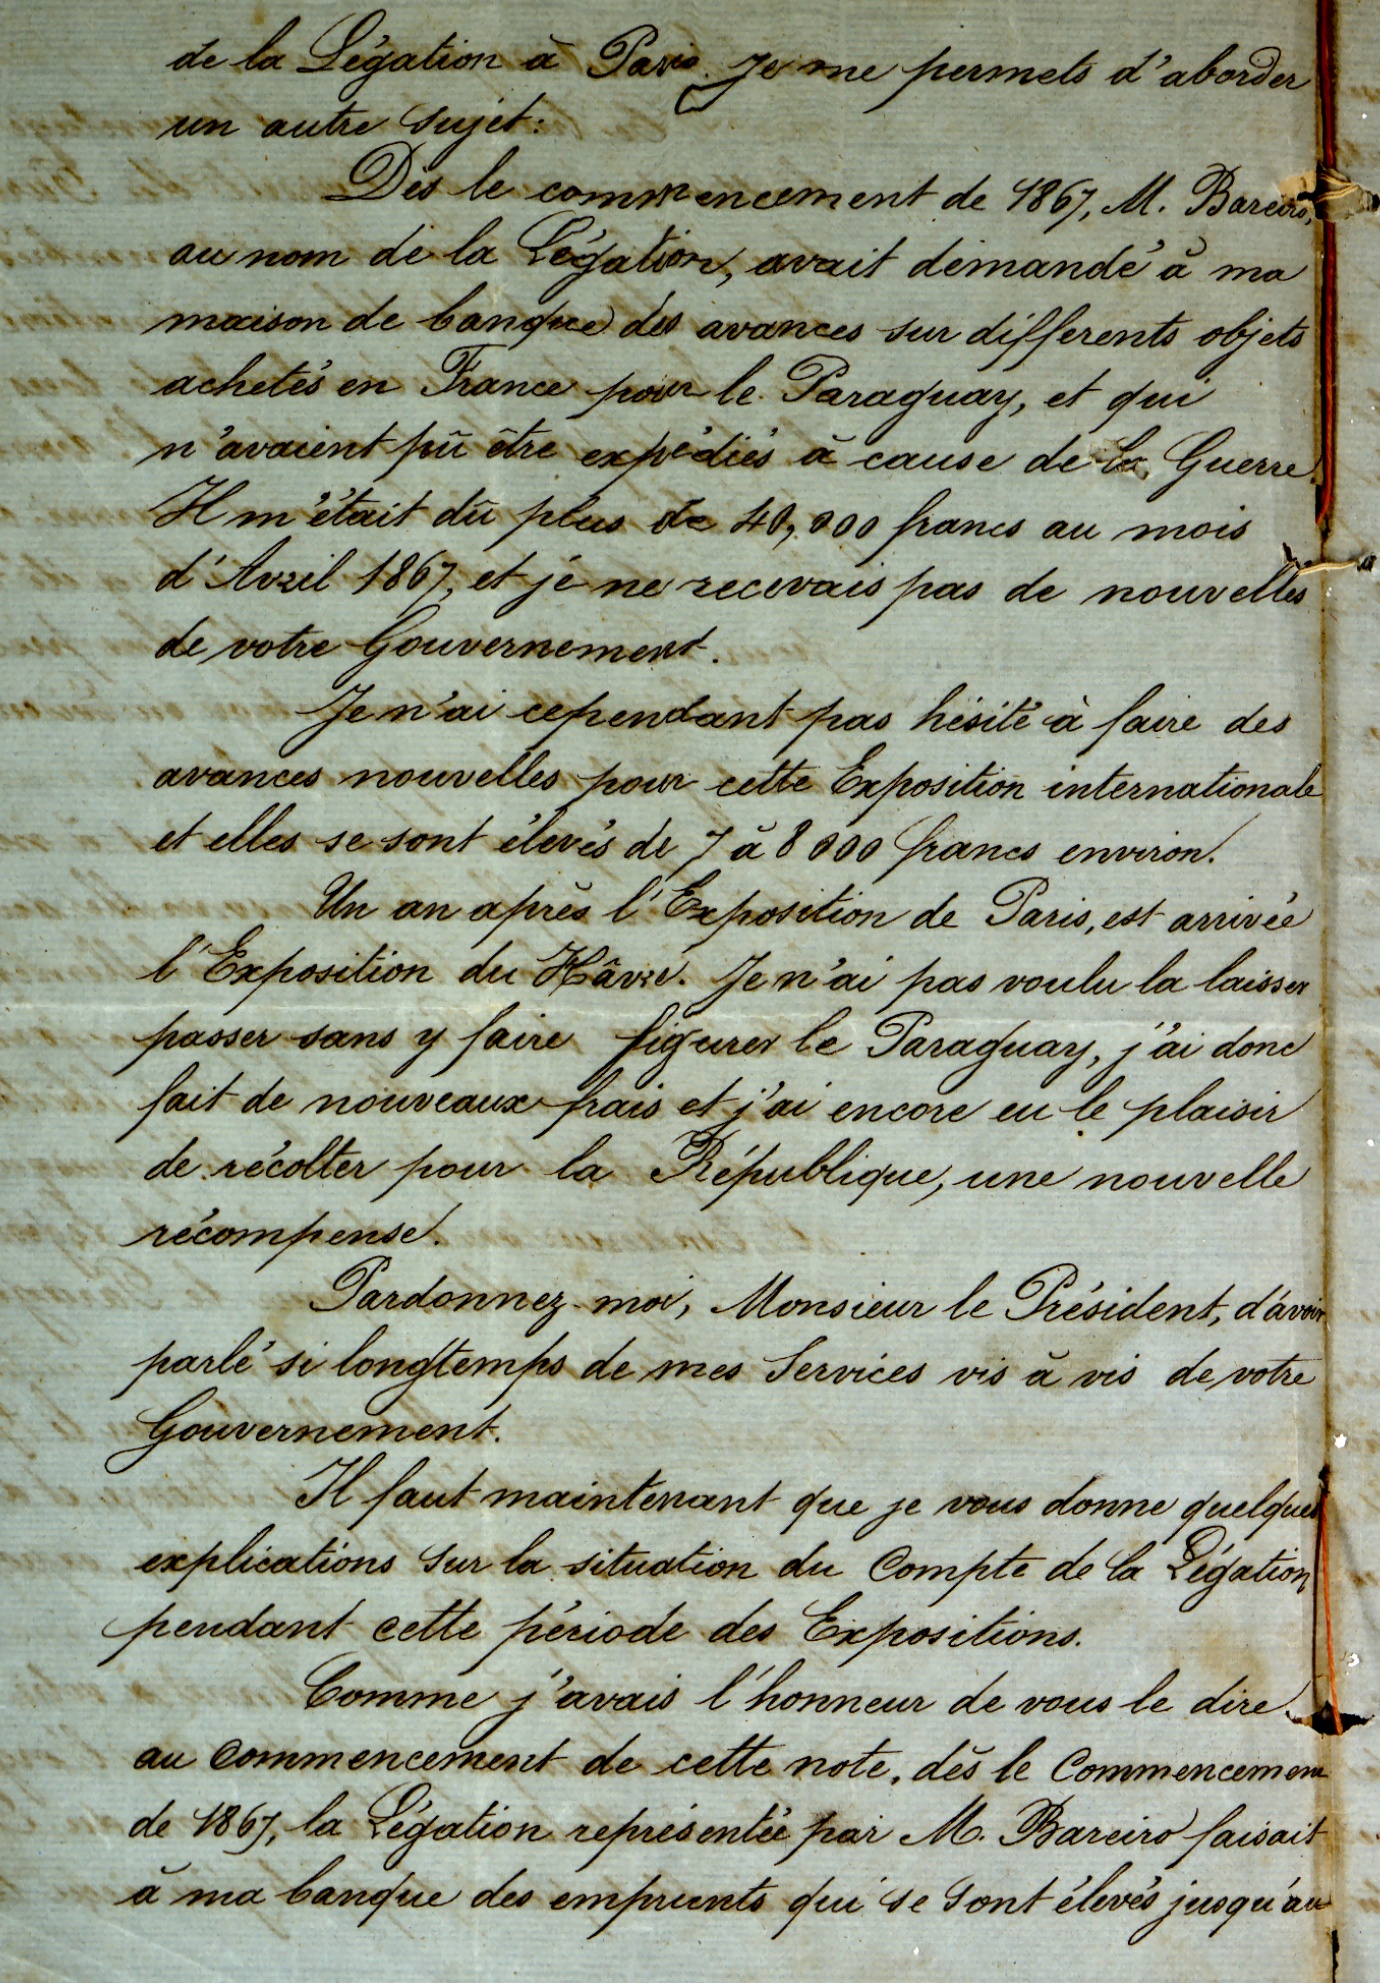 de la Légation à Paris. Je me permets d'aborder
un autre Sujet:
Dès le commencement de 1867, M. Bareiro,
au nom de la Légation, avait demandé à ma
maison de banque des avances sur differents objets
achetés en France pour le Paraguay, et qui
n'avaient pû être expédiés à cause de la Guerre.
Il m'était dû plus de 40,000 francs au mois
d'Avril 1867, et je ne recevais pas de nouvelles
de votre Gouvernement.
Je n'ai cependant pas hésité à faire des
avances nouvelles pour cette Exposition internationale
et elles se sont élevés de 7 à 8 000 francs environ.
Un an après l'Exposition de Paris, est arrivée
l'Exposition du Hâvre. Je n'ai pas voulu la laisser
passer sans y faire figurer le Paraguay, j'ai donc
fait de nouveaux frais et j'ai encore eu le plaisir
de récolter pour la République, une nouvelle
récompense.
Pardonnez-moi, Monsieur le Président, d'avoir
parlé si longtemps de mes Services vis à vis de votre
Gouvernement.
Il faut maintenant que je vous donne quelques
explications Sur la situation du Compte de la Légation
pendant cette période des Expositions.
Comme j'avais l'honneur de vous le dire
au Commencement de cette note, dès le Commencement
de 1867, la Légation représentée par M. Bareiro faisait
à ma banque des emprunts qui se Sont élevés jusqu'au